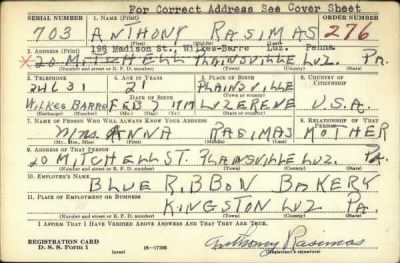 For Correct Address See Cover Sheet
SERIAL NUMBER 1. NAME (Print) ORDER NUMBER
703 ANTHONY RASIMAS 276
(First) (Middle) (Last)
2. ADDRESS (Print) 198 Madison St., Wilkes-Barre Luz. Penna.
X 20 MITCHELL PLAINSVILLE LUZ. PA.
(Number and street or R. F. D. number) (Town) (County) (State)
3. TELEPHONE 4. AGE IN YEARS 5. PLACE OF BIRTH 6. COUNTRY OF CITIZENSHIP
21 PLAINSVILLE
DATE OF BIRTH (Town or county)
WILKES BARRE FEB LUZERENE U.S.A.
(Exchange) (Number) (Mo.) (Day) (Yr.) (State or country)
7. NAME OF PERSON WHO WILL ALWAYS KNOW YOUR ADDRESS 8. RELATIONSHIP OF THAT PERSON
Mrs. ANNA RASIMAS MOTHER
(Mr., Mrs., Miss) (First) (Middle) (Last)
9. ADDRESS OF THAT PERSON
20 MITCHELL ST. PLAINSVILLE LUZ. PA.
(Number and street or R. F. D. number) (Town) (County) (State)
10. EMPLOYER'S NAME
BLUE RIBBON BAKERY
11. PLACE OF EMPLOYMENT OR BUSINESS
KINGSTON LUZ PA.
(Number and street or R. F. D. number) (Town) (County) (State)
I AFFIRM THAT I HAVE VERIFIED ABOVE ANSWERS AND THAT THEY ARE TRUE.
REGISTRATION CARD
D. S. S. Form 1 (over) 16—17105 Anthony Rasimas
(Registrant's signature)